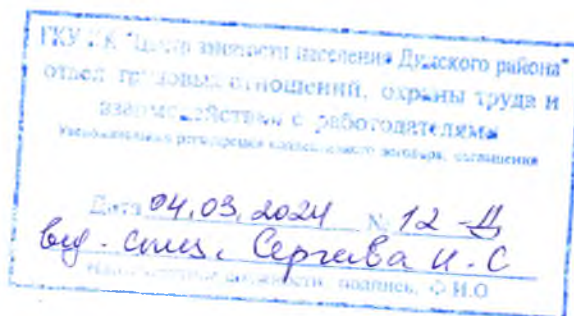 ГКУ "Центр занятости населения Дудского района"
отдел трудовых отношений, охраны труда и
взаимодействия с работодателями
Уведомительная регистрация коллективного договора, соглашения
Дата 04.03.2024 № 12-Д
вед. спец. Сергеева И.С
Наименование должности, подпись, Ф.И.О